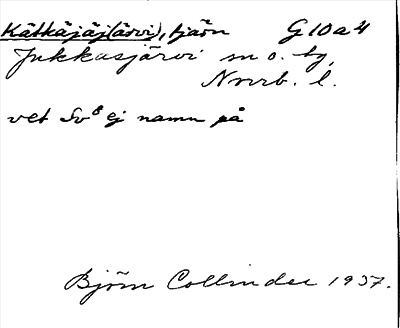 Kätkäjäj(ärvi), tjärn G10a4
Jukkasjärvi sn o. tg,
Norrb. l.
vet Sv⁸ ej namn på
Björn Collinder 1937.